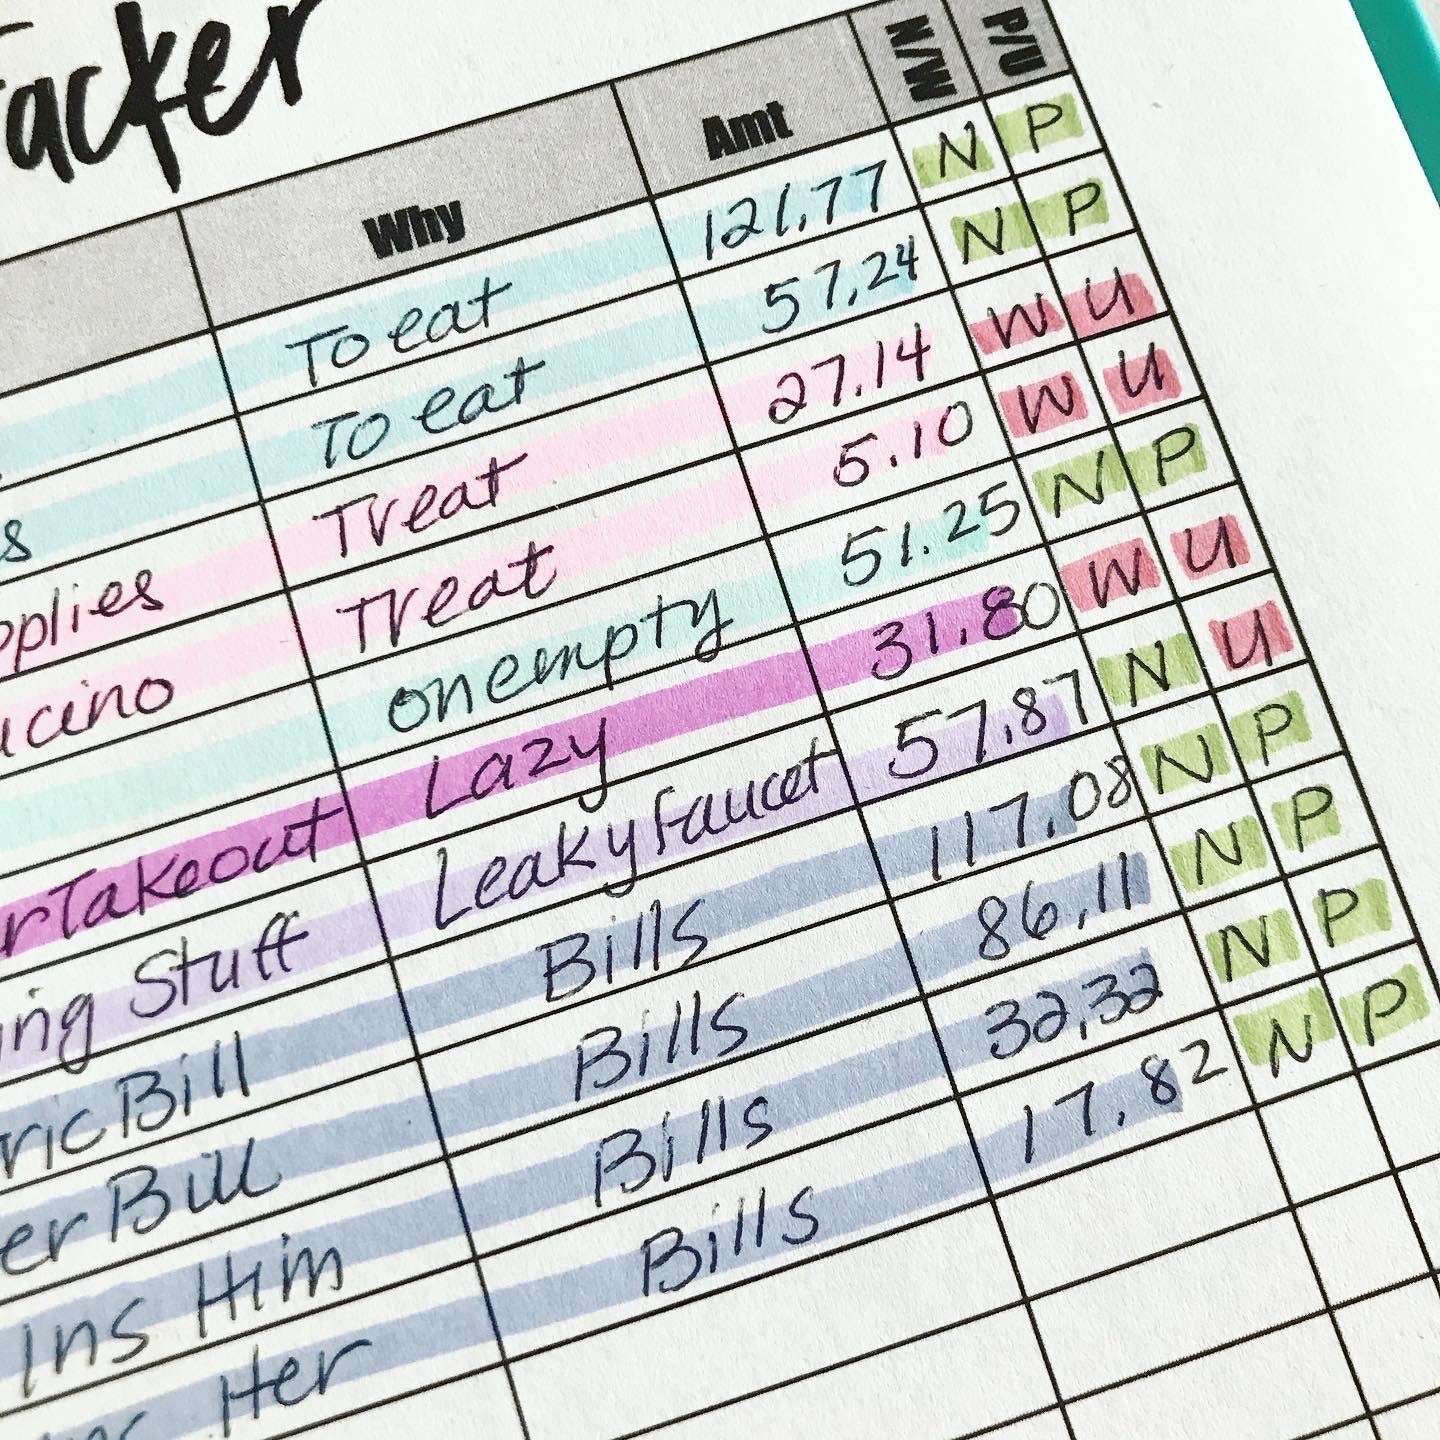 Why Amt N/W P/U
To eat 121.77 N P
To eat 57.24 N P
Treat 27.14 W U
Treat 5.10 W U
on empty 51.25 N P
Takeout Lazy 31.80 W U
Stuff Leaky faucet 57.87 N U
Bill Bills 117.08 N P
Bill Bills 86.11 N P
Ins Him Bills 32.32 N P
Her Bills 17.82 N P